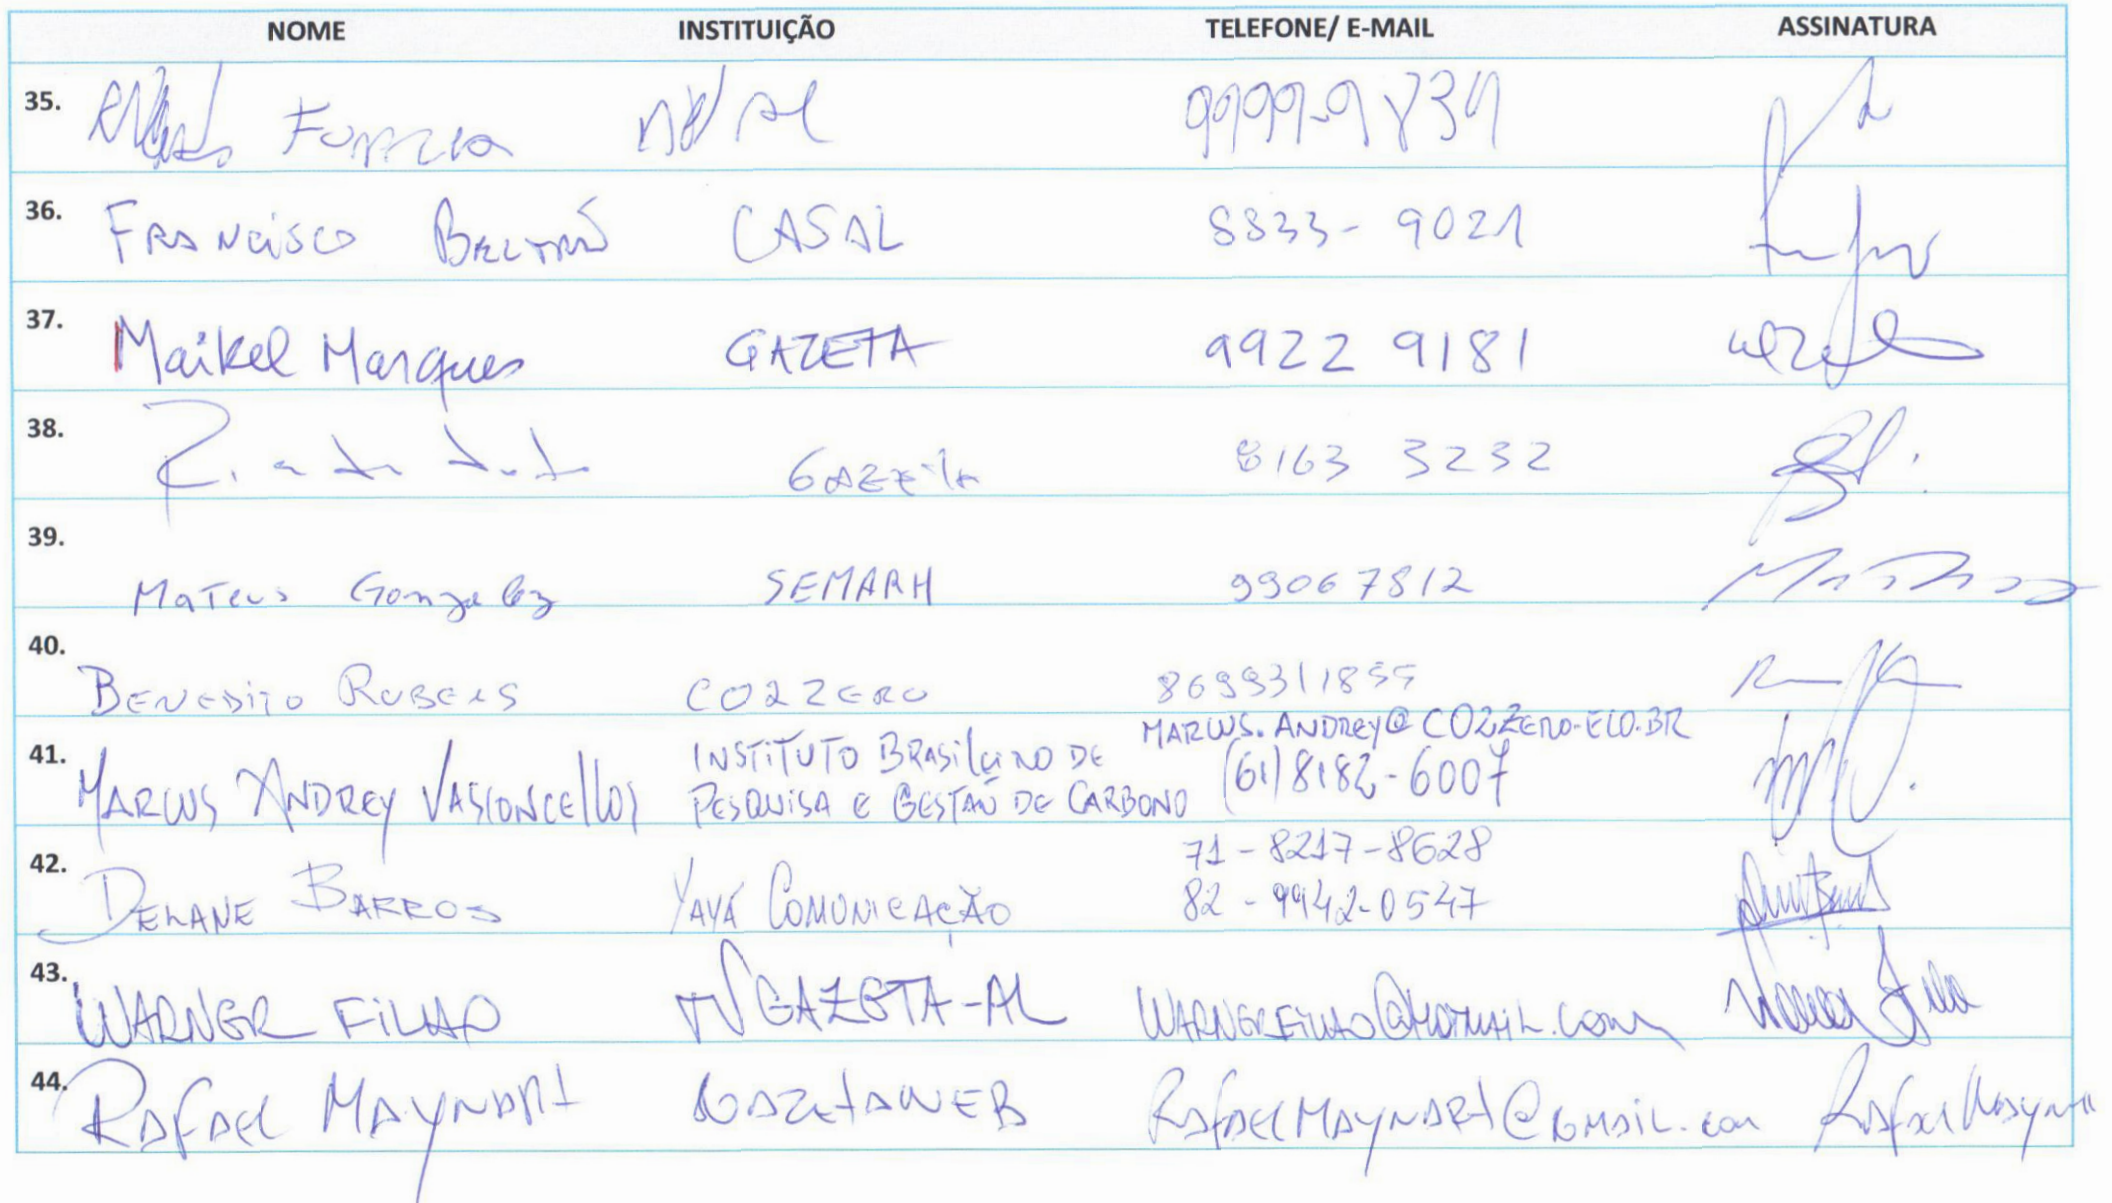 NOME INSTITUIÇÃO TELEFONE/ E-MAIL ASSINATURA
35. 9999-9834
36. FRANCISCO BELTRÃO CASAL 8833-9021
37. Maikel Marques GAZETA 9922 9181
38. GAZETA 8163 3232
39. Mateus Gonzalez SEMARH 99067812
40. BENEDITO RUBENS CO2ZERO
41. MARCUS ANDREY VASCONCELLOS INSTITUTO BRASILEIRO DE MARCUS.ANDREY@CO2ZERO.ECO.BR
PESQUISA E GESTÃO DE CARBONO (61)8182-6007
71-8217-8628
42. DELANE BARROS YAYÁ COMUNICAÇÃO 82-9942-0547
43. WARNER FILHO TV GAZETA-AL WARNERFILHO@HOTMAIL.COM
44. RAFAEL MAYNART GAZETAWEB RAFAELMAYNART@GMAIL.com Rafael Maynart